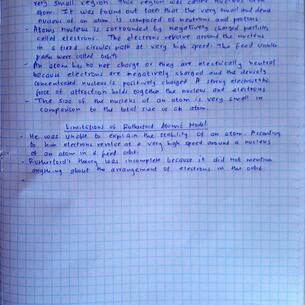 very small region. This region was called nucleus of an
atom. It was found out later that the very small and dense
nucleus of an atom is composed of neutrons and protons
- Atoms nucleus is surrounded by negatively charged particles
called electrons. The electrons revolve around the nucleus
in a fixed circular path at very high speed. The fixed circular
paths were called orbits
- An atom has no net charge or they are electrically neutral
because electrons are negatively charged and the densely
concentrated nucleus is positively charged. A strong electrostatic
force of attraction holds together the nucleus and electrons
- The size of the nucleus of an atom is very small in
comparison to the total size of an atom
Limitations of Rutherford Atomic Model
- He was unable to explain the stability of an atom. According
to him electrons revolve at a very high speed around a nucleus
of an atom in a fixed orbit.
- Rutherford's theory was incomplete because it did not mention
anything about the arrangement of electrons in the orbit